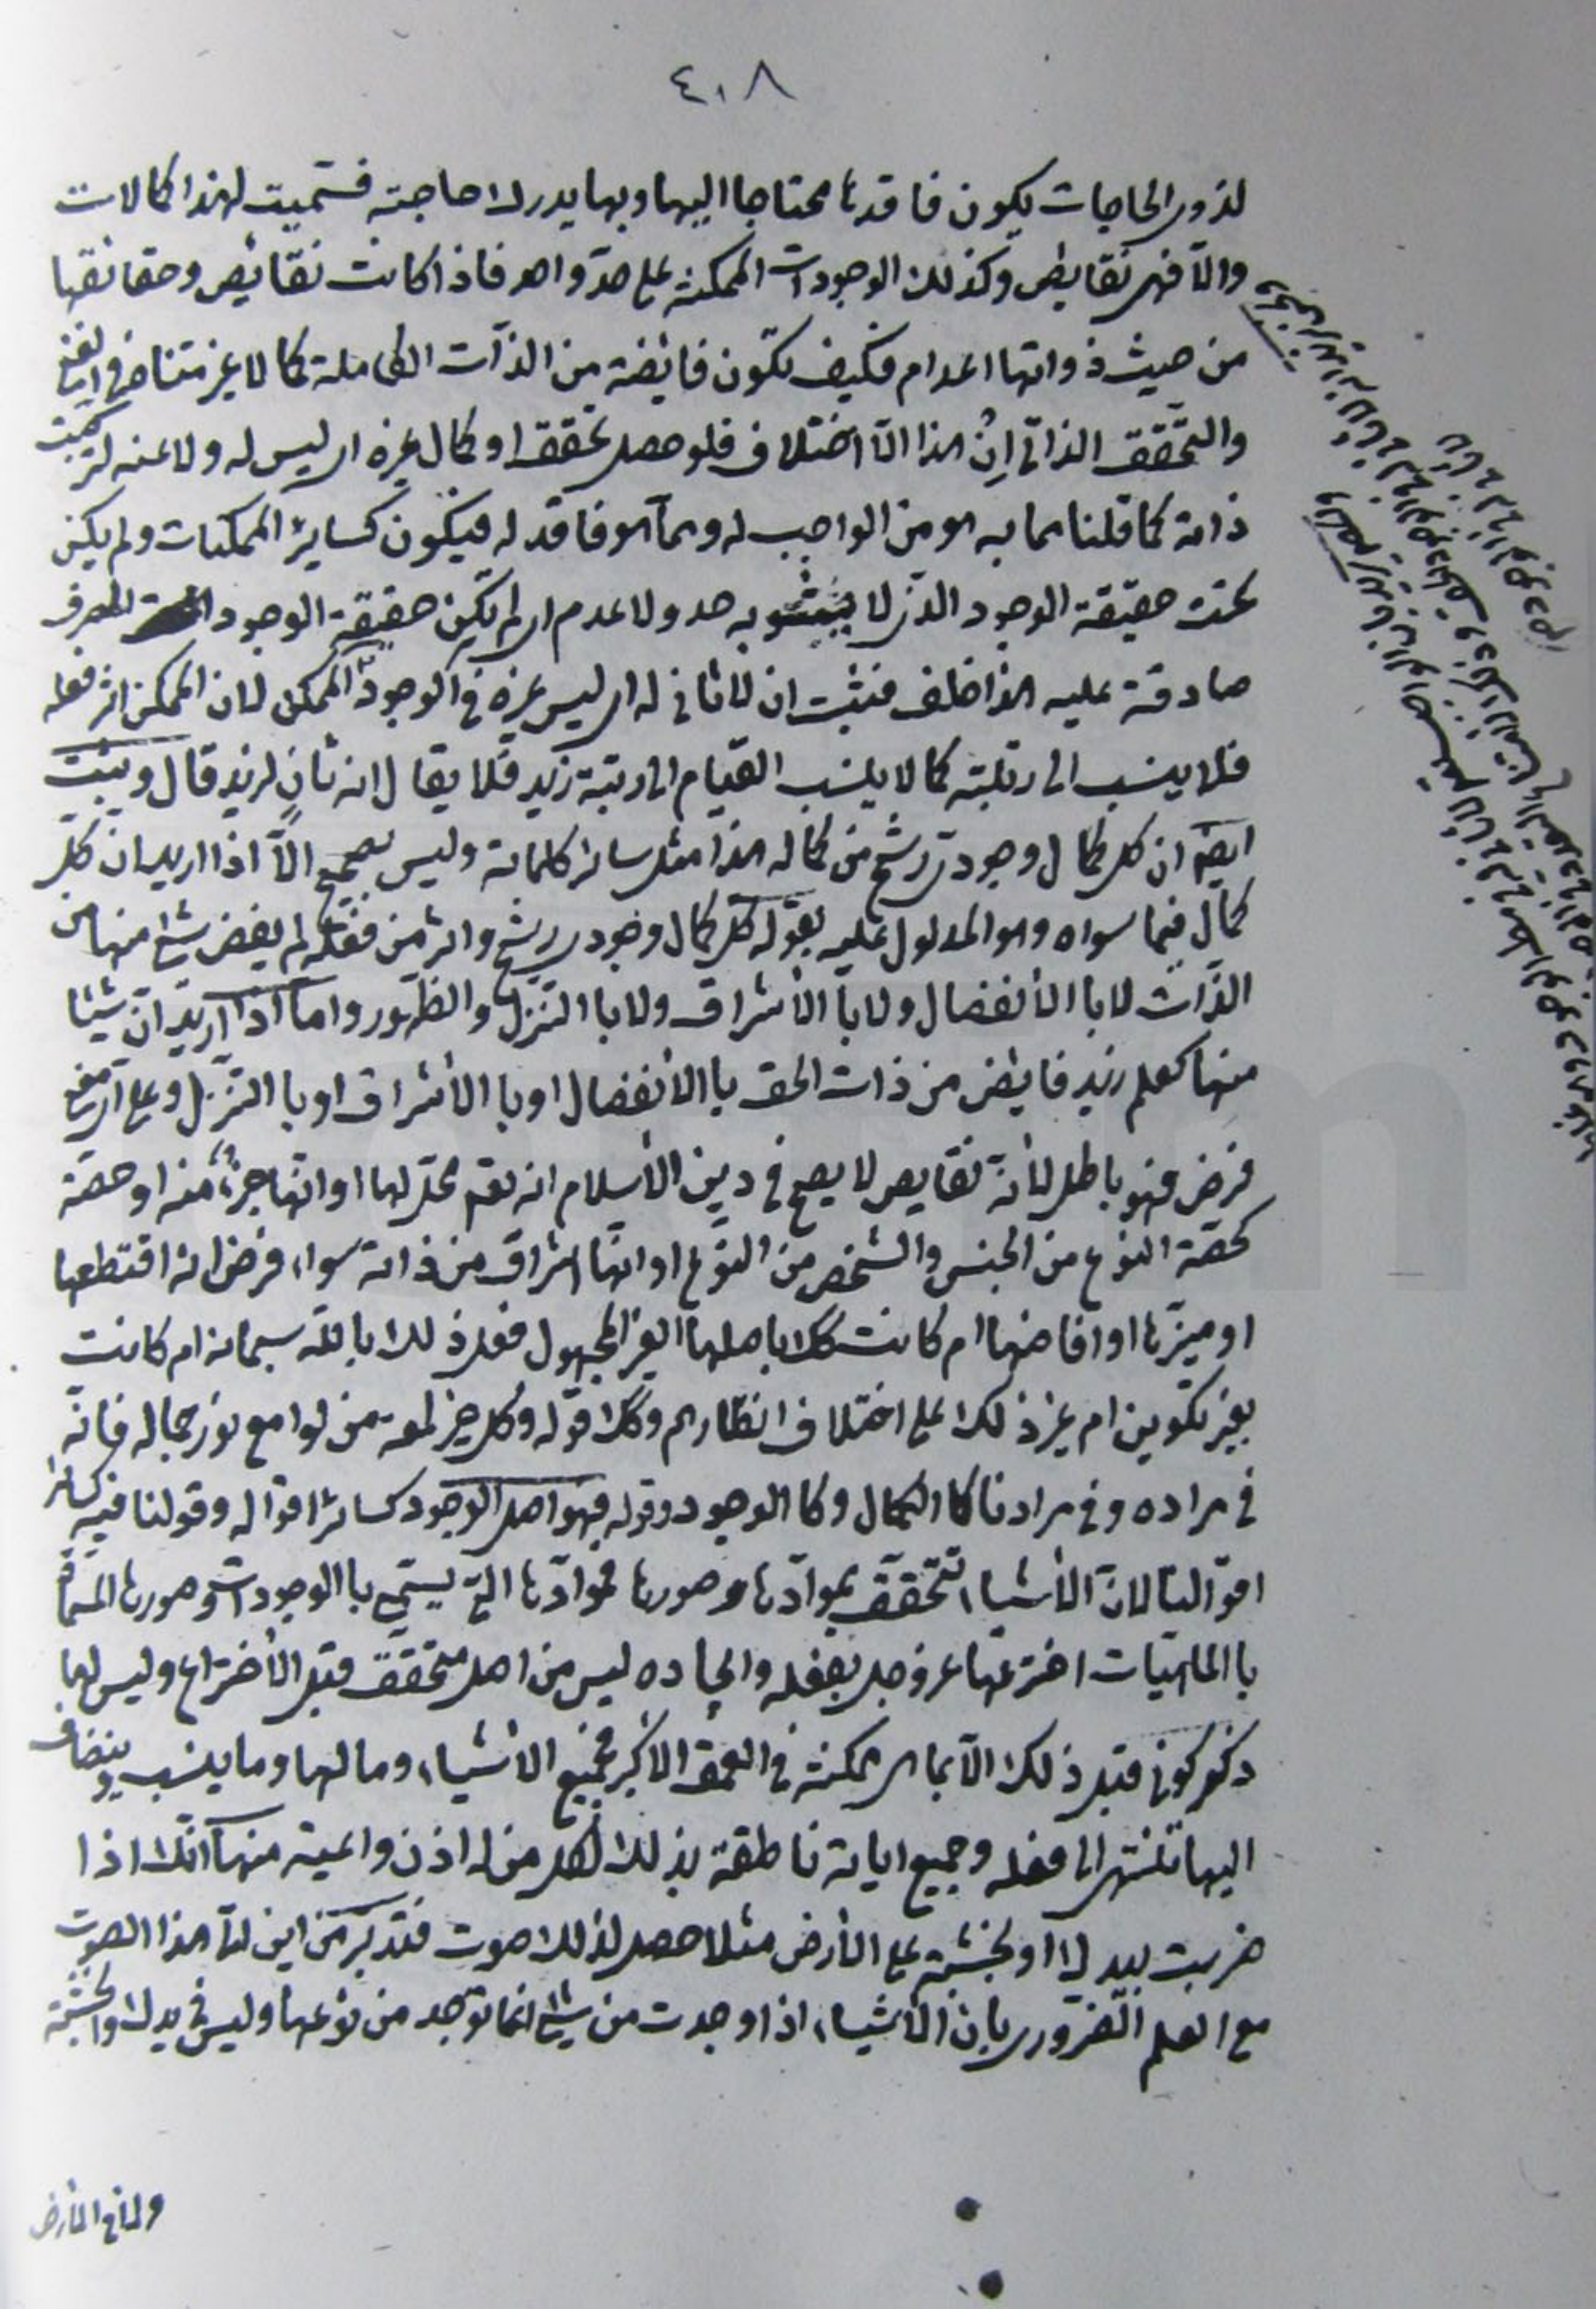 ٤٠٨
لذوى الحاجات يكون فاقدها محتاجا اليها وبها يدرك حاجته فسميت لهذا كمالات
والّا فهى نقايص وكذلك الوجودات الممكنة على حدّ واحد فاذا كانت نقايص وحقائقها
من حيث ذواتها اعدام فكيف تكون فائضة من الذات الكاملة كمالا غير متناه فى
والتحقق الذاتى ان هذا الّا اختلاف فلو حصل تحقق او كمال غيره اى ليس له ولا عنه لتركبت
ذاته كما قلنا مما به هو من الواجب له ومما هو فاقد له فيكون كساير الممكنات ولم يكن
تحت حقيقة الوجود الذى لا يشوبه حد ولا عدم اى لم تكن حقيقة الوجود الصرف
صادقة عليه هذا خلف فثبت ان لا ثانى له اى ليس غيره فى الوجود الممكن لان الممكن اثر فعله
فلا ينسب الى رتبته كما لا ينسب القيام الى رتبة زيد فلا يقال انه ثانٍ لزيد قال ويثبت
ايضا ان كل كمال وجودى رشح من كماله هذا مثل ساير كلماته وليس بصحيح الّا اذا اريد ان كل
كمال فيما سواه وهو المدلول عليه بقوله كل كمال وجودى رشح واثر من فعله لم يفض شئ منها من
الذات لا با الأنفصال ولا با الأشراق ولا با التنزل والظهور واما اذا اريد ان شيئا
منها كعلم زيد فايض من ذات الحق با الأنفصال او با الأشراق او با التنزل وعلى اى معنى
فرض فهو باطل لأنه نقايص لا يصح فى دين الأسلام انه تعم محل لها او انها جزء منه او حصة
كحصة النوع من الجنس والشخص من النوع او انها اشراق من ذاته سواء فرض انه اقتطعها
او ميزها او افاضها ام كانت كك باصلها الغير المجهول فعل ذلك بالله سبحانه ام كانت
بغير تكوين ام غير ذلك على اختلاف انظارهم وكك قوله وكل خير لمعة من لوامع نور جماله فانه
فى مراده وفى مرادنا كا الكمال وكا الوجود وقوله فهو اصل الوجود كسائر اقواله وقولنا فيه كسائر
اقوالنا لان الأشياء تتحقق بموادّها وصورها فموادّها التى يسمى با الوجودات وصورها المسماة
با الماهيات اخترعها عز وجل بفعله وايجاده ليس من اصل متحقق قبل الأختراع وليس لها
ذكر كونى قبل ذلك الّا بما هى ممكنة فى العمق الأكبر فجميع الأشياء وما لها وما ينسب وينضاف
اليها تنتهى الى فعله وجميع اياته ناطقة بذلك لكل من له اذن واعية منها انك اذا
ضربت بيدك او بخشبة على الأرض مثلا حصل لذلك صوت فتدبر من اين لك هذا الصوت
مع العلم الضرورى بان الأشياء اذا وجدت من شئ انما توجد من نوعها وليس فى يدك والخشبة
ولا فى الأرض